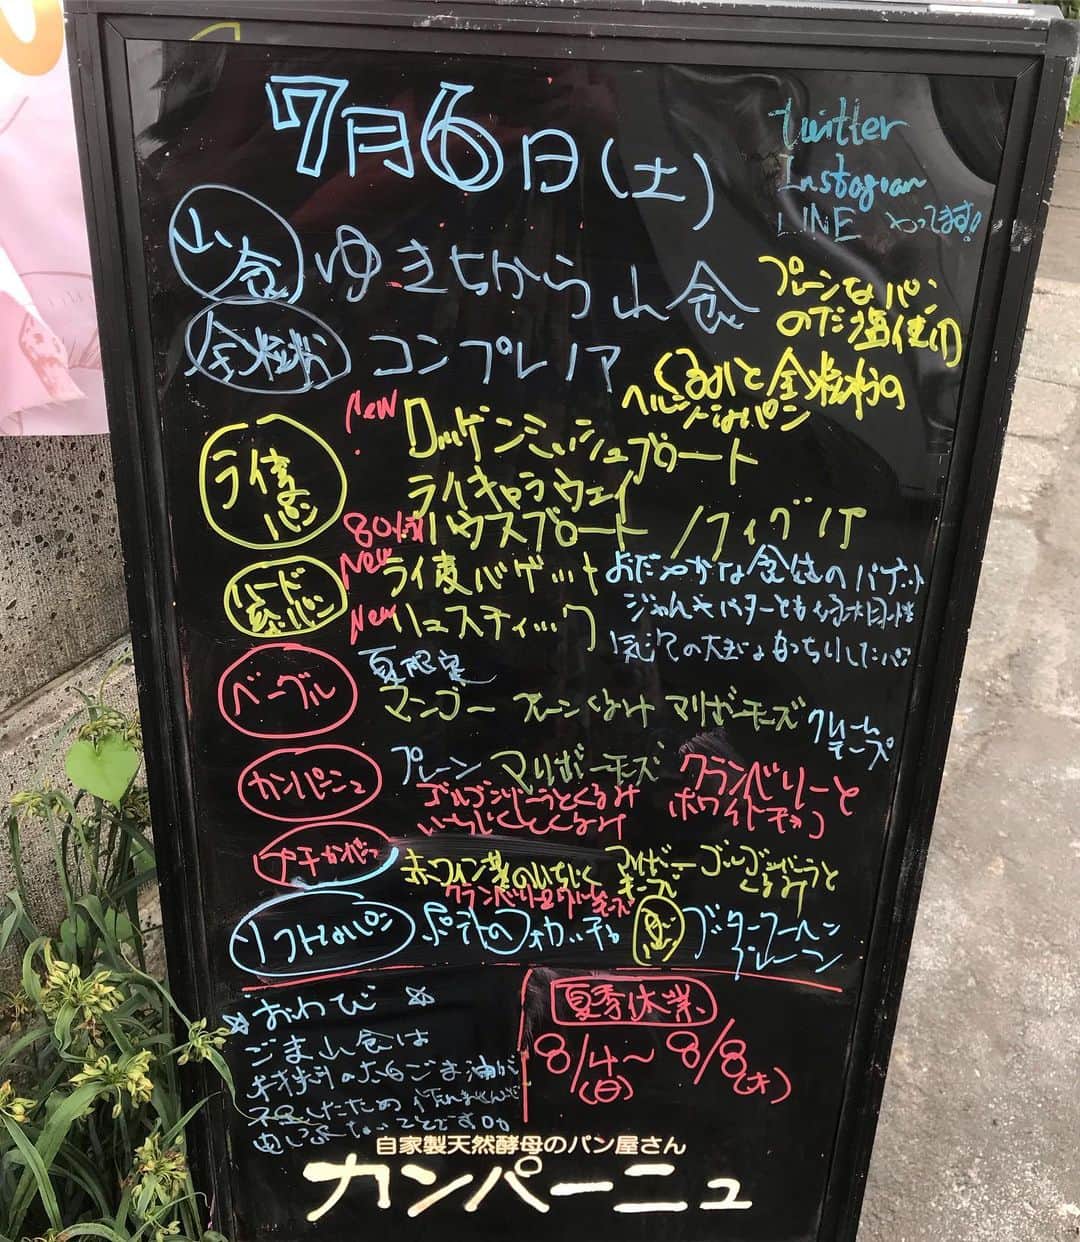 7月6日(土)
twitter
Instagram
LINE やってます!
山食 ゆきちから山食
プレーンなパン
のだ塩使用
全粒粉 コンプレノア
くるみと全粒粉の
ヘルシーなパン
ライ麦パン
New ロッゲンミッシュブロート
ライキャラウェイ
80% ハウスブロート ノアフィグノア
ハード系パン
New ライ麦バゲット
おだやかな食感のバゲット
New リュスティック
ジャムやバターとも相性
気泡の大きなもっちりしたパン
ベーグル
夏限定
マンゴー プレーン くるみ マリボーチーズ クリームチーズ
カンパーニュ
プレーン マリボーチーズ クランベリーと
ホワイトチョコ
ゴルゴンゾーラとくるみ
いちじくとくるみ
プチかんぱ
赤ワイン煮のいちじく マリボーチーズ ゴルゴンゾーラと
くるみ
クランベリー&クリームチーズ
ソフトなパン ポテトのフォカッチャ
バターロール
プレーン
☆おわび☆
ごま山食は
材料の太白ごま油が
不足したため 作れませんので
申し訳ないことです
夏季休業
8/4~8/8
(日) (木)
自家製天然酵母のパン屋さん
カンパーニュ